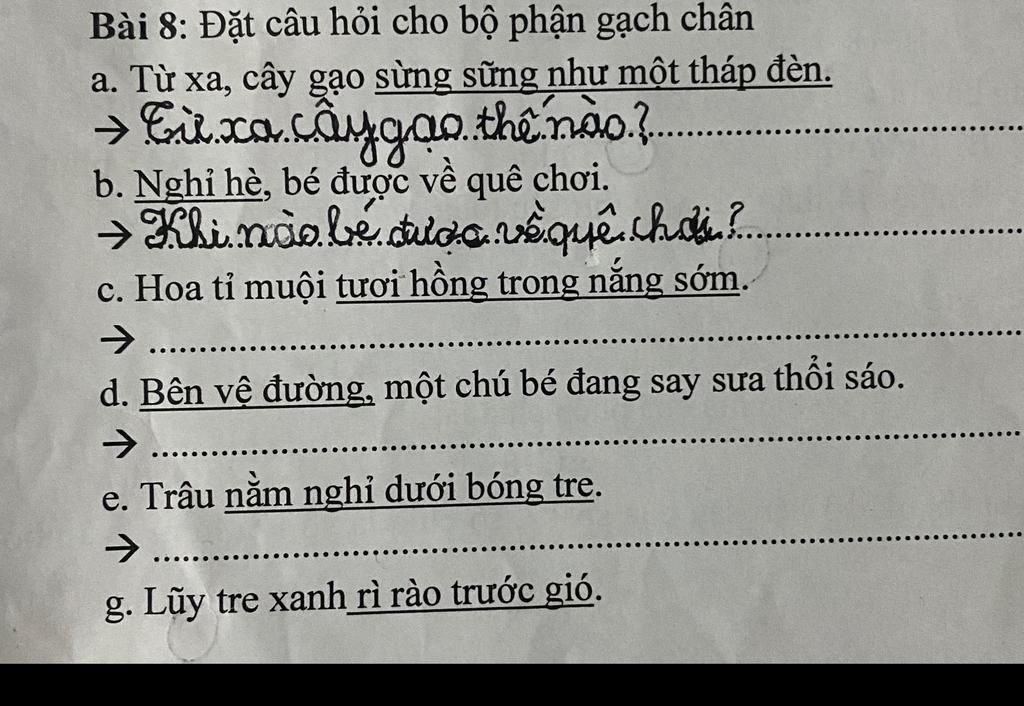 Bài 8: Đặt câu hỏi cho bộ phận gạch chân
a. Từ xa, cây gạo sừng sững như một tháp đèn.
→ Từ xa cây gạo thế nào?
b. Nghỉ hè, bé được về quê chơi.
→ Khi nào bé được về quê chơi?
c. Hoa tỉ muội tươi hồng trong nắng sớm.
→
d. Bên vệ đường, một chú bé đang say sưa thổi sáo.
→
e. Trâu nằm nghỉ dưới bóng tre.
→
g. Lũy tre xanh rì rào trước gió.